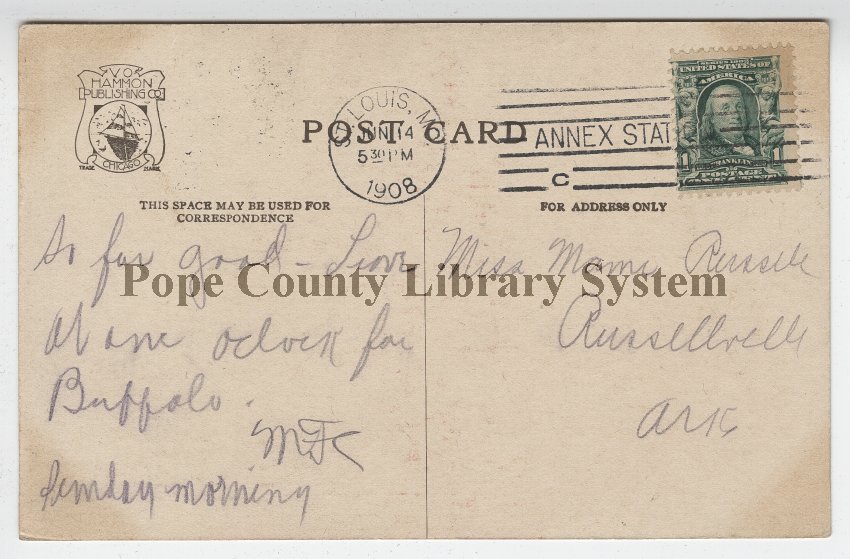 V.O.
HAMMON
PUBLISHING CO.
TRADE MARK
CHICAGO
ST. LOUIS, MO.
JUN 14
5 30 PM
1908
ANNEX STAT
C
SERIES 1902
UNITED STATES OF
AMERICA
FRANKLIN
1 1
POSTAGE
ONE CENT
POST CARD
THIS SPACE MAY BE USED FOR
CORRESPONDENCE
FOR ADDRESS ONLY
So far good - Leave
At one oclock for
Buffalo.
MFC
Sunday morning
Miss Mame Russell
Russellville
Ark
Pope County Library System